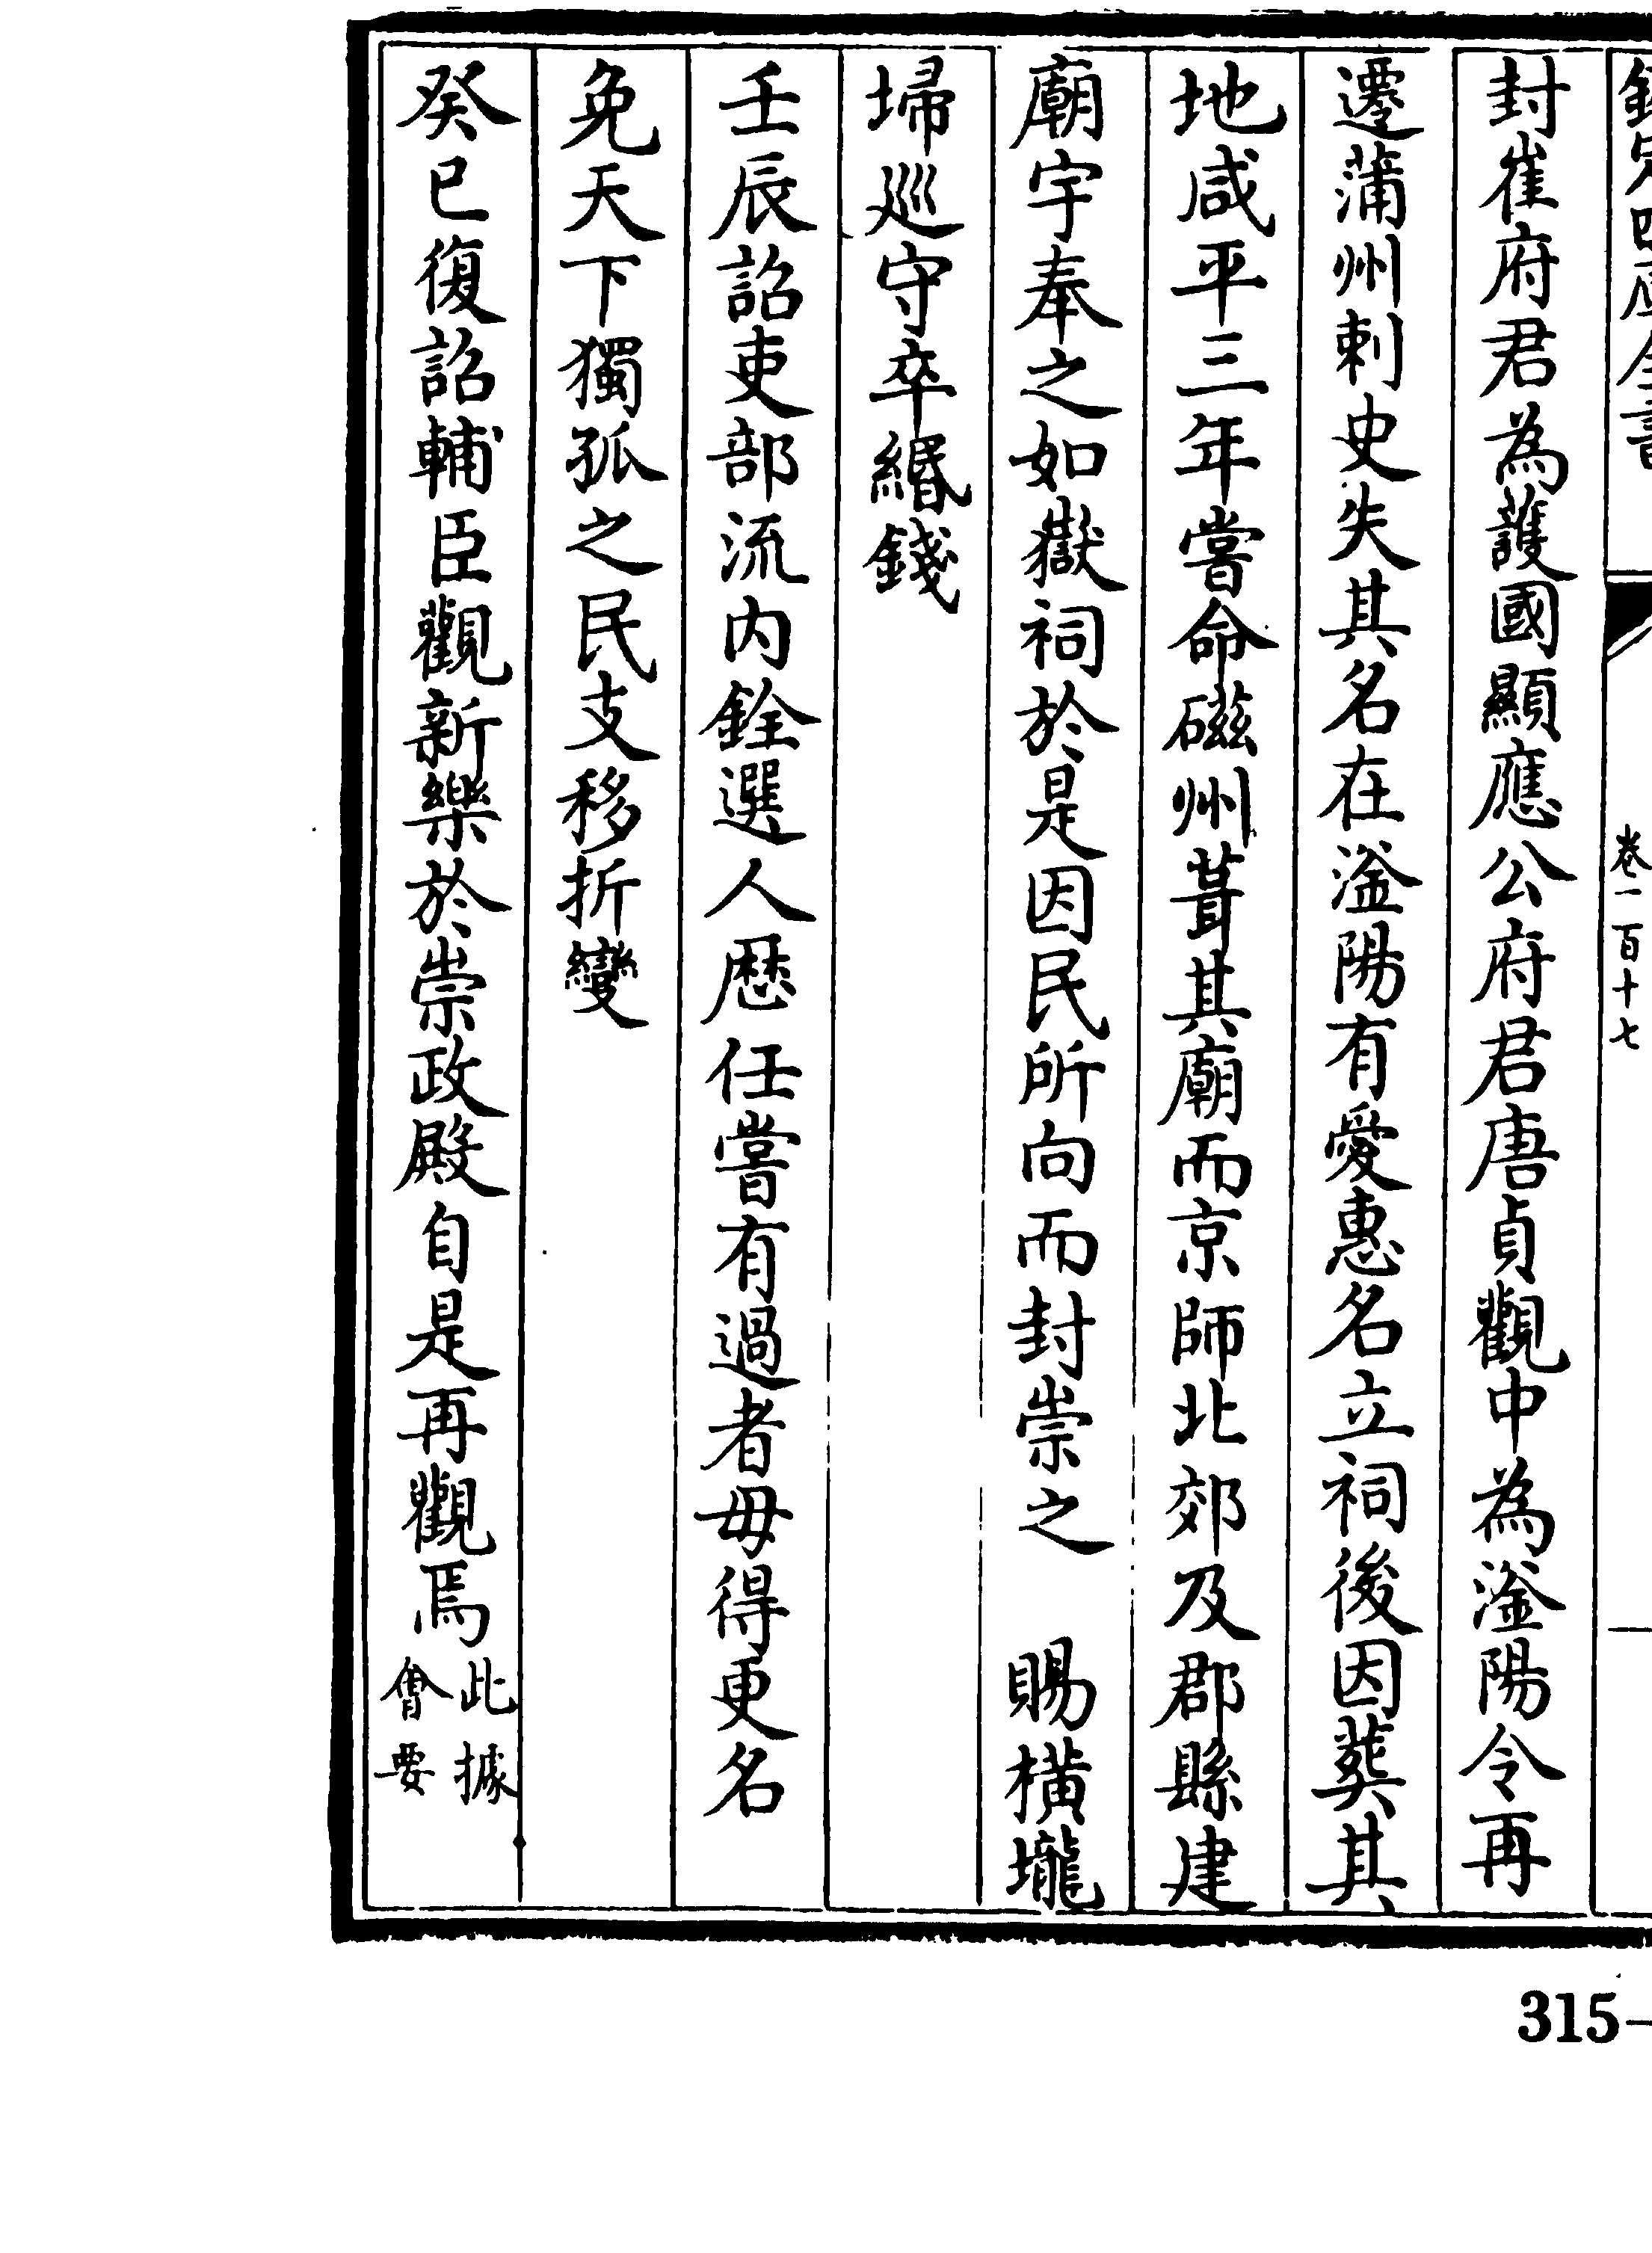 欽定四庫全書
卷一百十七
封崔府君為護國顯應公府君唐貞觀中為滏陽令再
遷蒲州刺史失其名在滏陽有愛惠名立祠後因葬其
地咸平三年嘗命磁州葺其廟而京師北郊及郡縣建
廟宇奉之如嶽祠於是因民所向而封崇之　賜橫壠
埽巡守卒緡錢
壬辰詔吏部流內銓選人歴任嘗有過者毋得更名
免天下獨孤之民支移折變
癸巳復詔輔臣觀新樂於崇政殿自是再觀焉此據
會要
315-